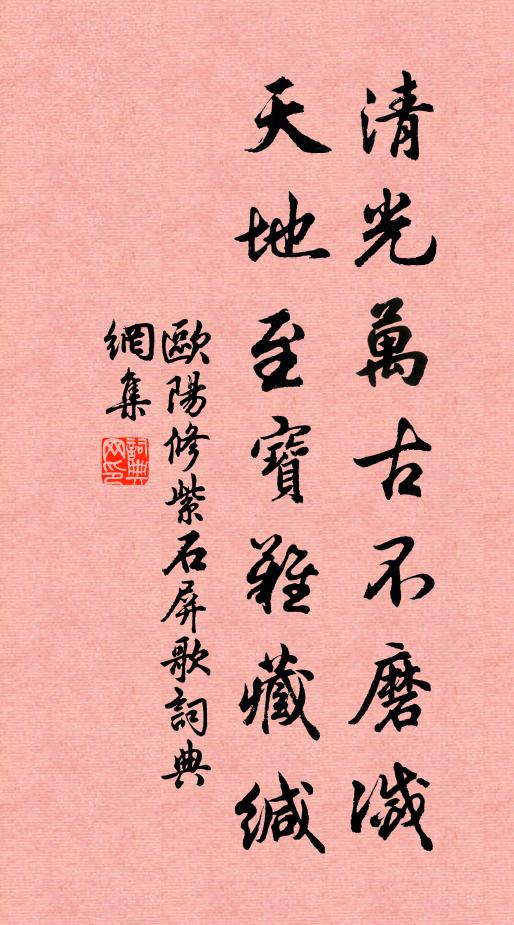 清光萬古不磨滅
天地至寶難藏緘
歐陽修紫石屏歌詞典
網集
詞典網印